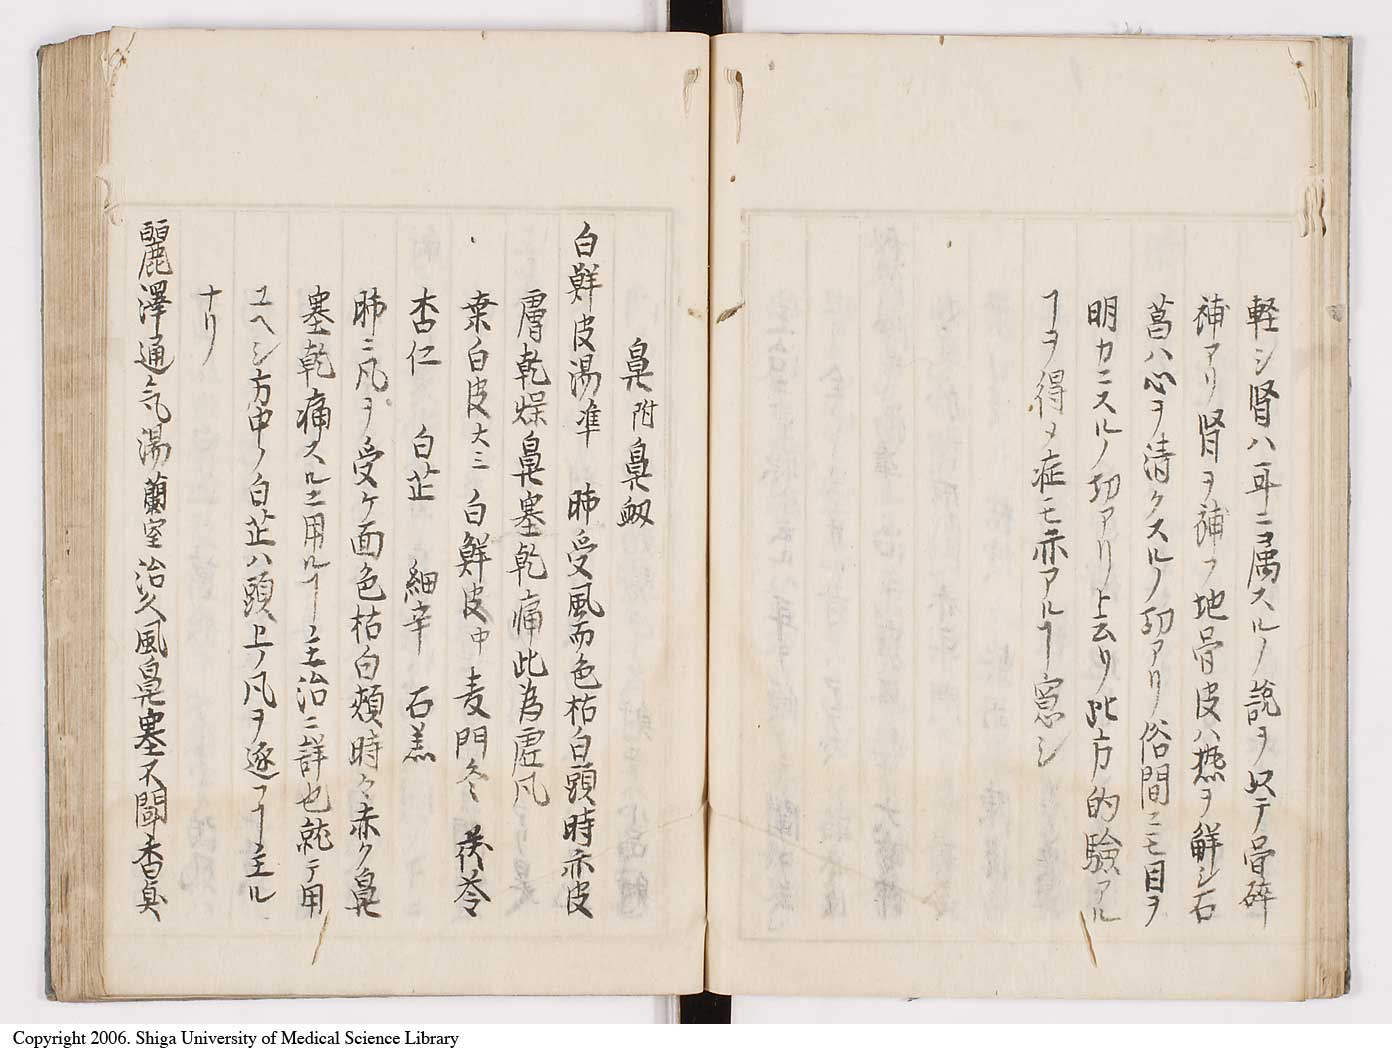 軽シ腎ハ耳ニ属スルノ説ヲ以テ骨砕
補アリ腎ヲ補フ地骨皮ハ熱ヲ解シ石
菖ハ心ヲ清クスルノ功アリ俗間ニモ目ヲ
明カニスルノ功アリト云リ此方的験アル
ヿヲ得〆症モ亦アルヿ寡シ
鼻附鼻衂
白鮮皮湯準 肺受風而色枯白頬時赤皮
膚乾燥鼻塞乾痛此為虚風
桒白皮大三 白鮮皮中 麦門冬 茯苓
杏仁 白芷 細辛 石羔
肺ニ風ヲ受ケ面色枯白頬時々赤ク鼻
塞乾痛スルニ用ルヿ主治ニ詳也就テ用
ユヘシ方中ノ白芷ハ頭上ノ風ヲ逐フヿ主ル
ナリ
麗澤通气湯蘭室 治久風鼻塞不聞香臭
Copyright 2006. Shiga University of Medical Science Library